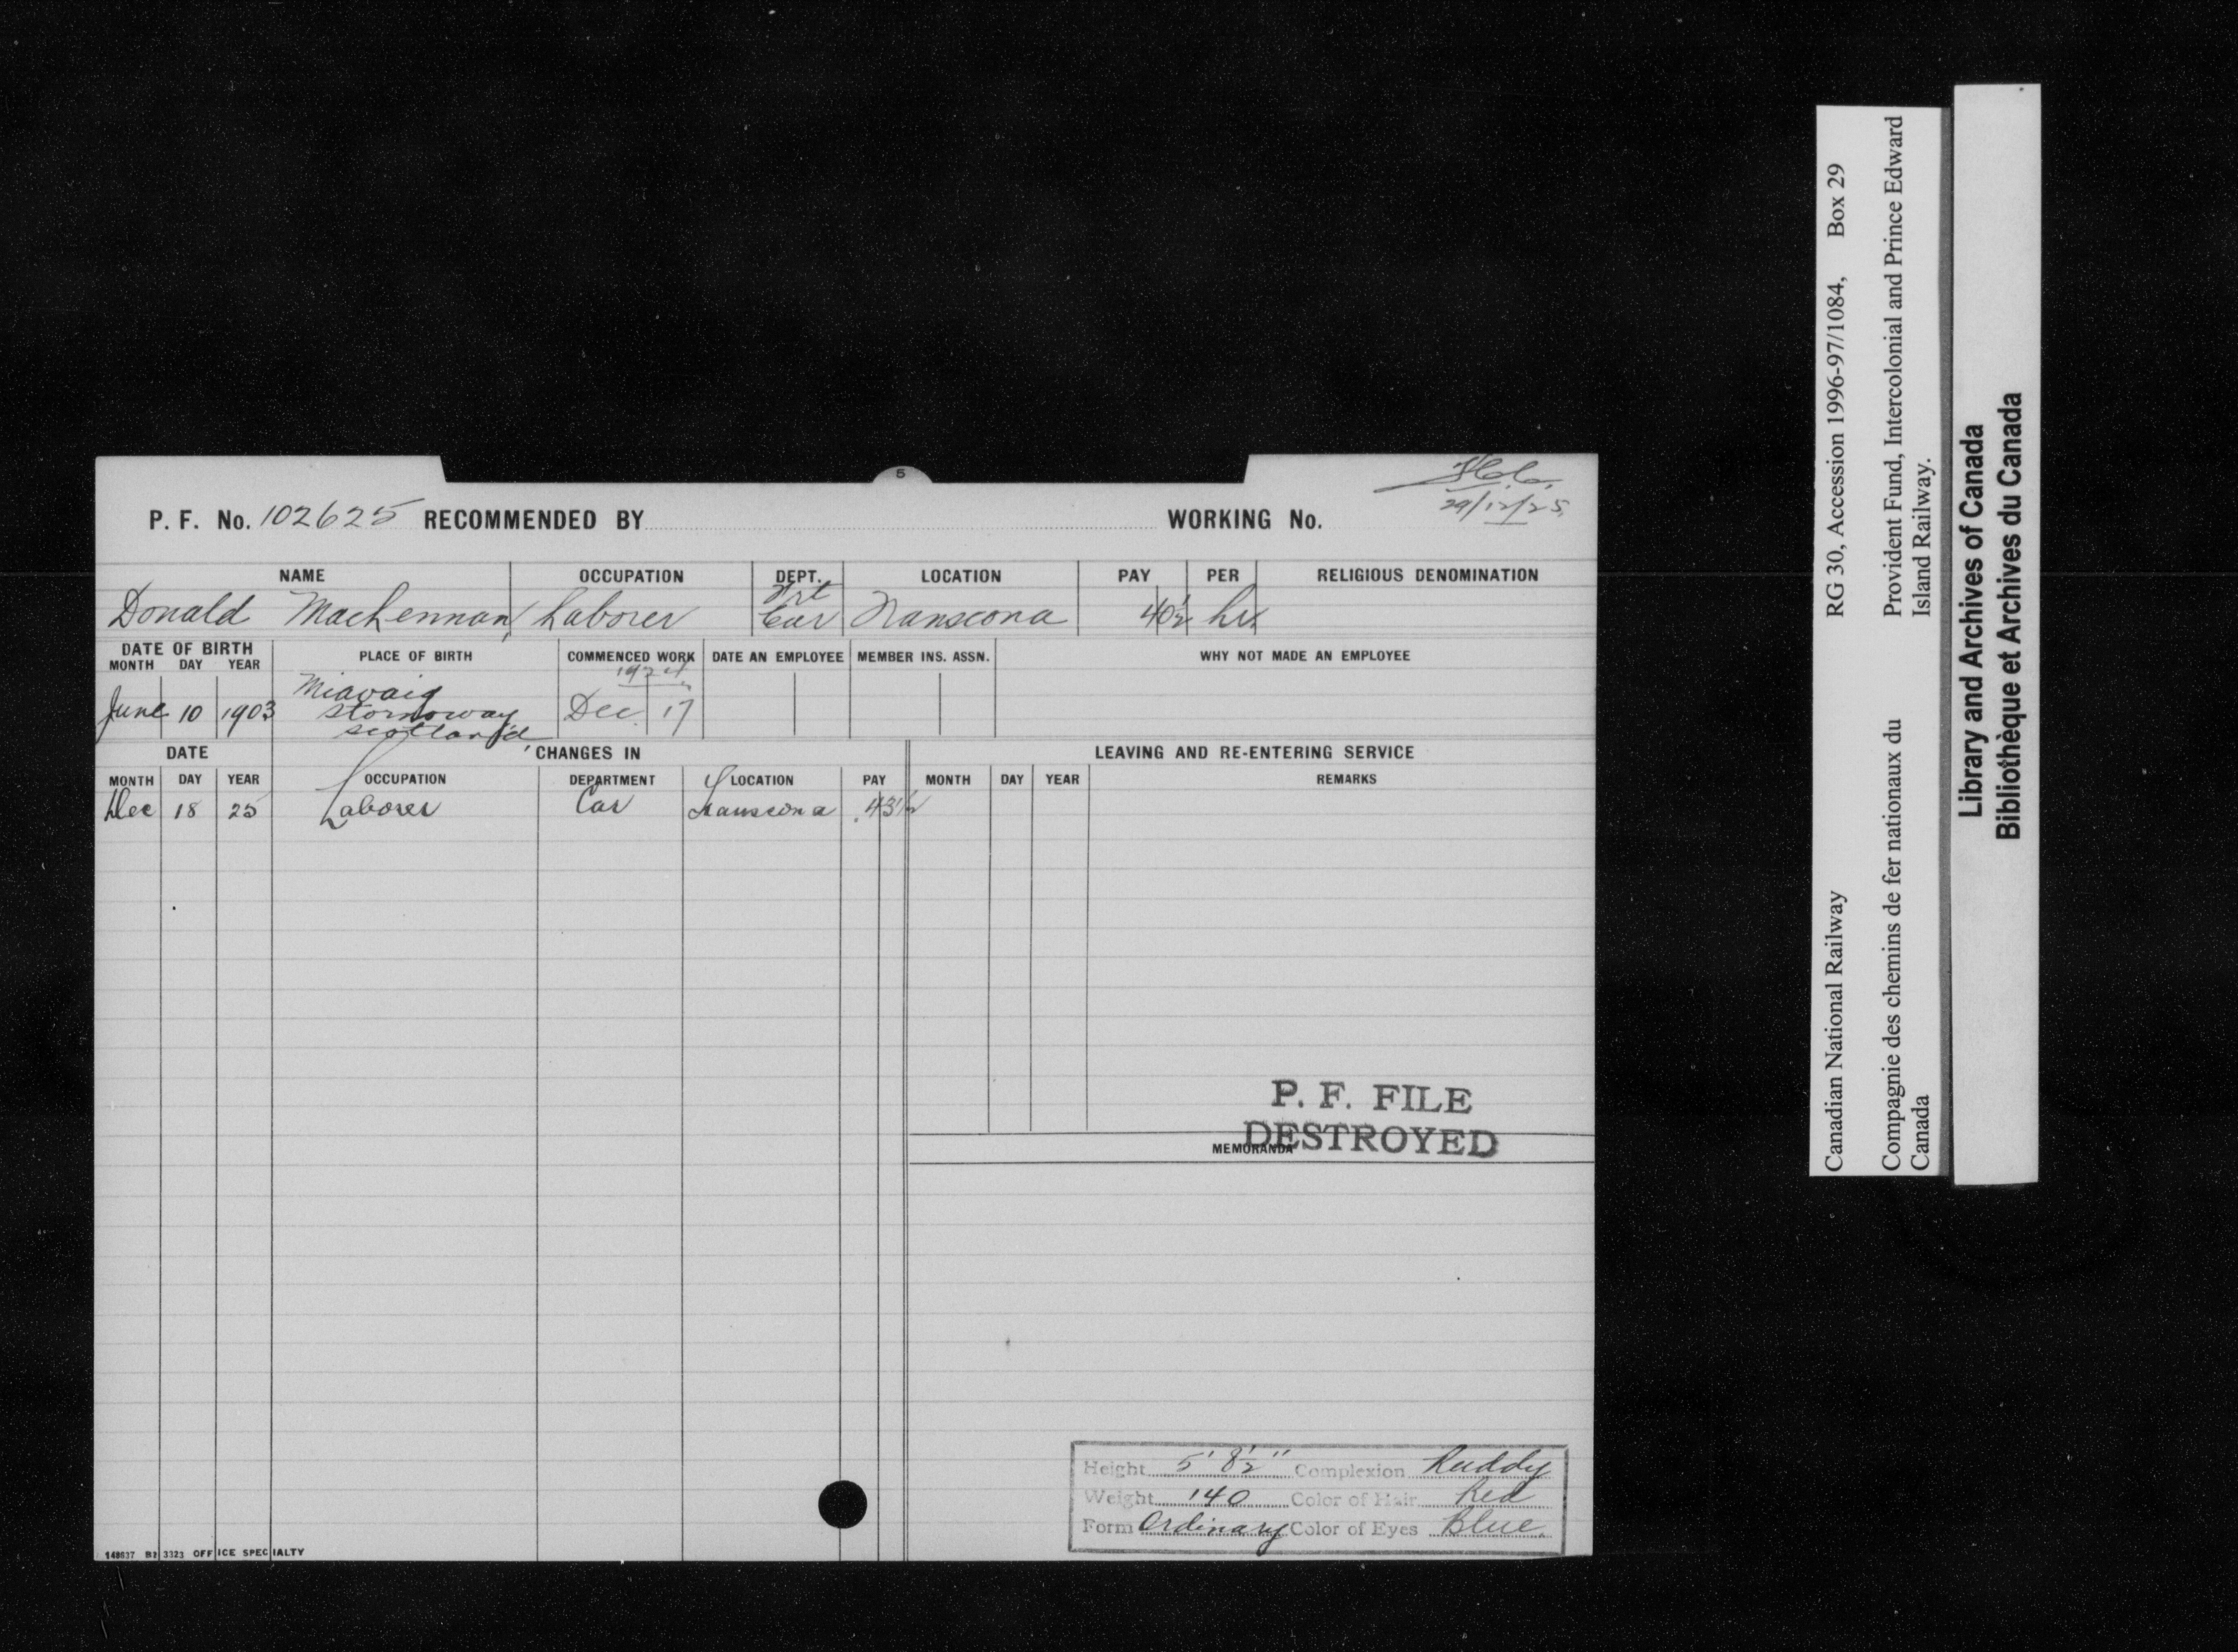 5
29/12/25
P. F. No. 102625 RECOMMENDED BY WORKING No.
NAME OCCUPATION DEPT. LOCATION PAY PER RELIGIOUS DENOMINATION
Donald MacLennan Laborer Frt Car Transcona 40½ hr.
DATE OF BIRTH
MONTH DAY YEAR PLACE OF BIRTH COMMENCED WORK DATE AN EMPLOYEE MEMBER INS. ASSN. WHY NOT MADE AN EMPLOYEE
1924
June 10 1903 Miavaig Stornoway Scotland Dec. 17
DATE CHANGES IN LEAVING AND RE-ENTERING SERVICE
MONTH DAY YEAR OCCUPATION DEPARTMENT LOCATION PAY MONTH DAY YEAR REMARKS
Dec 18 25 Laborer Car Transcona .43½
P. F. FILE
DESTROYED
MEMORANDA
Height 5' 8½" Complexion Ruddy
Weight 140 Color of Hair Red
Form Ordinary Color of Eyes Blue.
3323 OFFICE SPECIALTY
Canadian National Railway RG 30, Accession 1996-97/1084, Box 29
Compagnie des chemins de fer nationaux du Canada
Provident Fund, Intercolonial and Prince Edward Island Railway.
Library and Archives of Canada
Bibliothèque et Archives du Canada